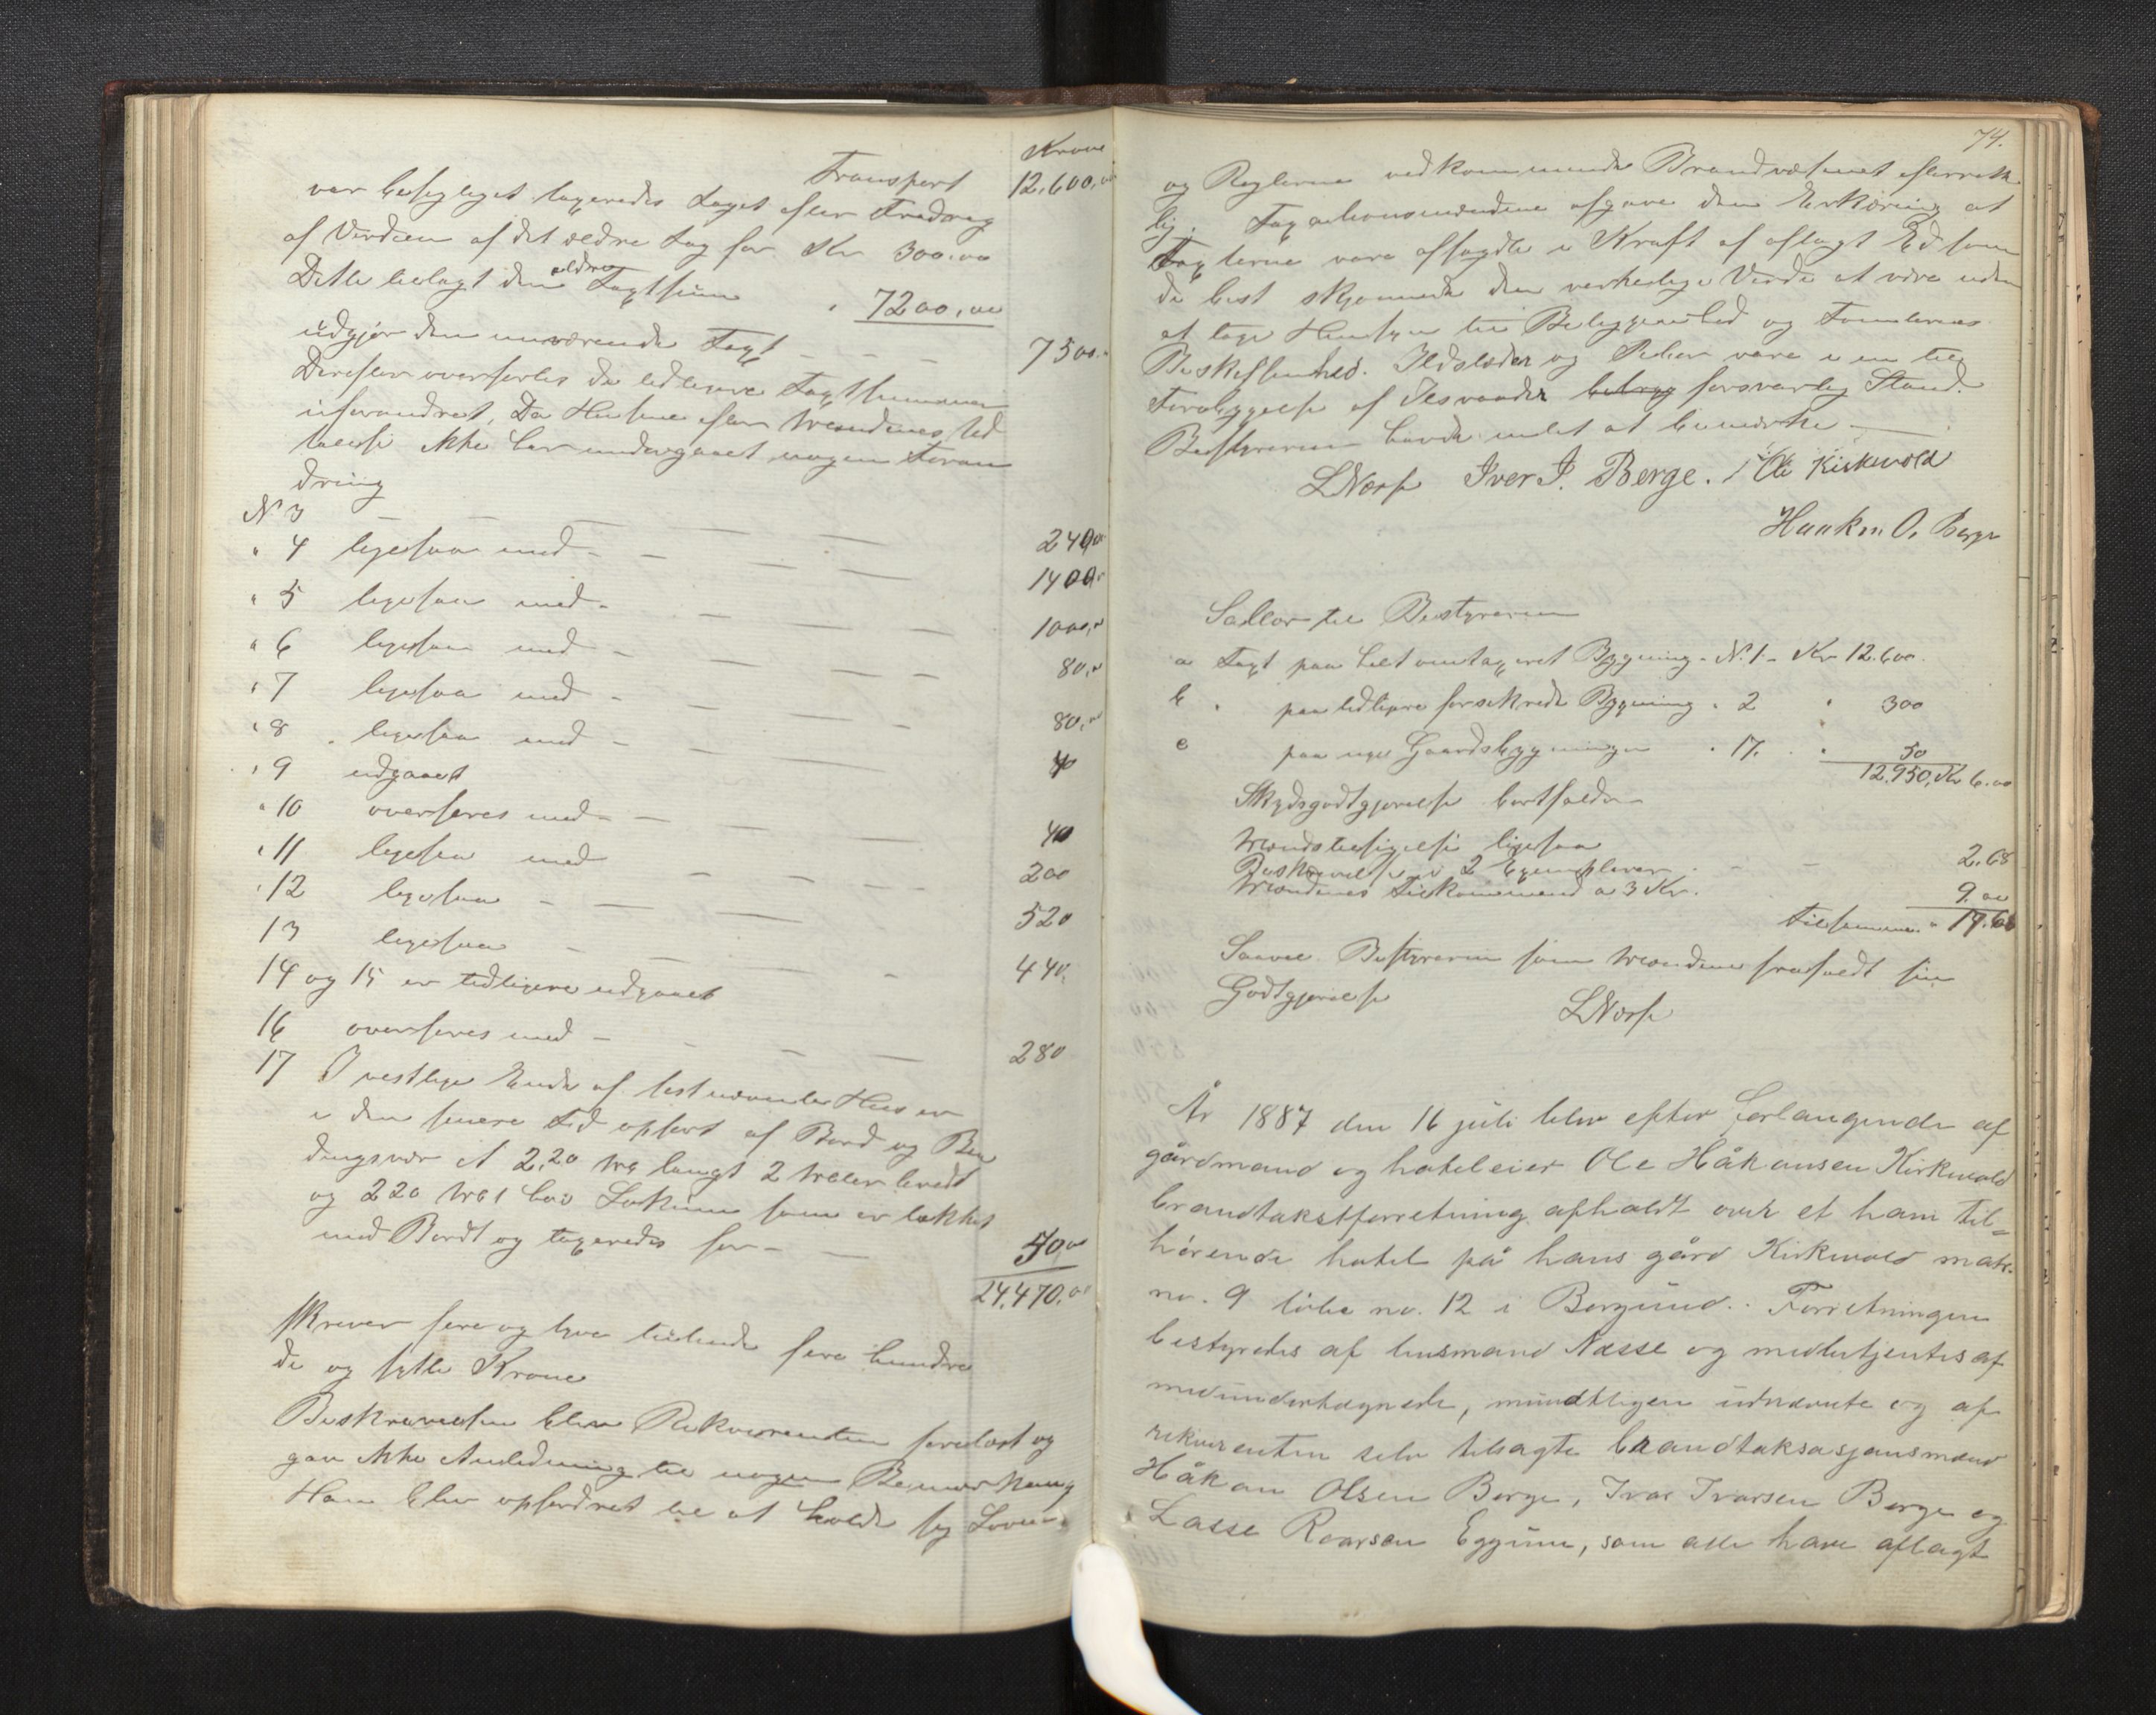 Krone
Transport 12,600,00
var besigtiget taxeredes Taget efter Fradrag
af Værdien af det ældre Tag for Kr 300.00
Dette tillagt den ældre Taxtsum " 7200,00
udgjør den nuværende Taxt — — — 7500.00
Derefter overførtes de tidligere Taxtsummer
uforandret, Da Husene efter Mændenes Ud
talelse ikke har undergaaet nogen Foran
dring
No 3 — — — — — 240,00
" 4 ligesaa med — — — — 1400,00
" 5 ligesaa med — — — — 1000,00
" 6 ligesaa med — — — — 80,00
" 7 ligesaa med — — — — 80,00
" 8 ligesaa med — — — 40
" 9 udgaaet
" 10 overføres med — — — — 40
" 11 ligesaa med — — — — 200
" 12 ligesaa — — — — 520
13 ligesaa — — — — 440.
14 og 15 er tidligere udgaaet
16 overføres med — — — — 280
17 I vestlige Ende af sistnævnte Hus er
i den senere Tid opført af Bord og Bin
dingsvær et 2,20 Met langt 2 Meter bredt
og 220 Met høi Lokum som er tækket
med Bordt og taxeredes for — — 50,00
24,470,00
skriver fire og tyve tusende fire hundre
de og sytti Krone
Beskrivelsen blev Rekvirenten forelæst og
gav ikke Anledning til nogen Bemærkning
Han blev opfordret til at holde sig Loven
74.
og Reglerne vedkommende Brandvæsenet efterrette
lig. Taxationsmændene afgave den Erklæring at
Taxterne vare afsagte i Kraft af aflagt Ed som
de best skjønnede den verkelige Værdi at være uden
at tage Hensyn til Beliggenhed og Tomternes
Beskaffenhed. Ildsteder og Piber vare i en til
Forebyggelse af Ilsvaade betryg forsvarlig Stand.
Bestyreren havde intet at bemærke —
LNæsse Iver I. Berge. / Ole Kirkevold
Haakon O. Berge
Sallær til Bestyreren
a Taxt paa helt omtaxeret Bygning - N. 1 - Kr 12.600.
b " paa tidligere forsekrede Bygning " 2 " 300
c paa nye Gaardsbygninger " 17. " 50
12.950. Kr 6.00
Skydsgodtgjørelse bortfalder
Mændstilsigelse ligesaa
Beskrivelse i 2 Exemplarer — — 2.68
Mændenes Tilkommend a 3 Kr. 9.00
tilsammen " 17.68
Saavel Bestyreren som Mændene frafaldt sin
Godtgjørelse
LNæsse
År 1887 den 16 juli blev efter forlangende af
gårdmand og hoteleier Ole Håkonsen Kirkevold
brandtakstforretning afholdt over et ham til=
hørende hotel på hans gård Kirkevold matr.
no. 9 løbe no. 12 i Borgund. Forretningen
bestyredes af lensmand Næsse og medbetjentes af
medundertegnede, mundtligen udnævnte og af
rekvirenten selv tilsagte brandtaksasjonsmænd
Håkon Olsen Berge, Ivar Ivarsen Berge og
Lasse Roarsen Eggum, som alle have aflagt